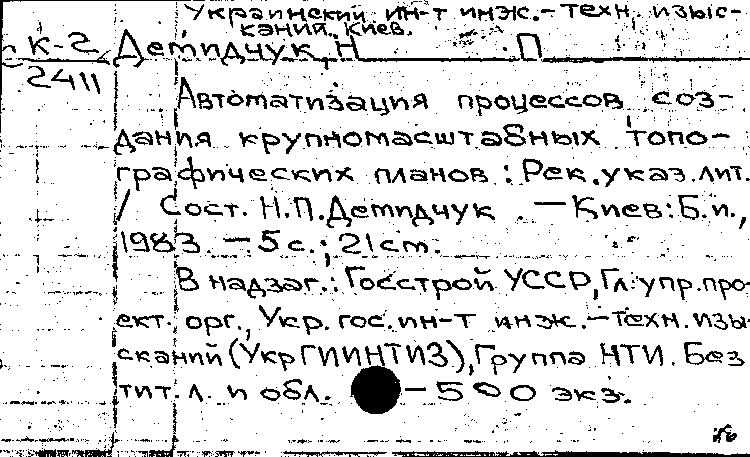 Украинский ин-т инж.-техн. изыс-
каний. Киев.
К-2 Демидчук, Н П
2411
Автоматизация процессов соз-
дания крупномасштабных топо-
графических планов : Рек. указ. лит.
/ Сост. Н.П. Демидчук . — Киев: Б.и.,
1983. — 5 с.; 21 см.
В надзаг.: Госстрой УССР, Гл. упр. про-
ект. орг., Укр. гос. ин-т инж.-техн. изы-
сканий (УкрГИИНТИЗ), Группа НТИ. Без
тит. л. и обл. — 500 экз.